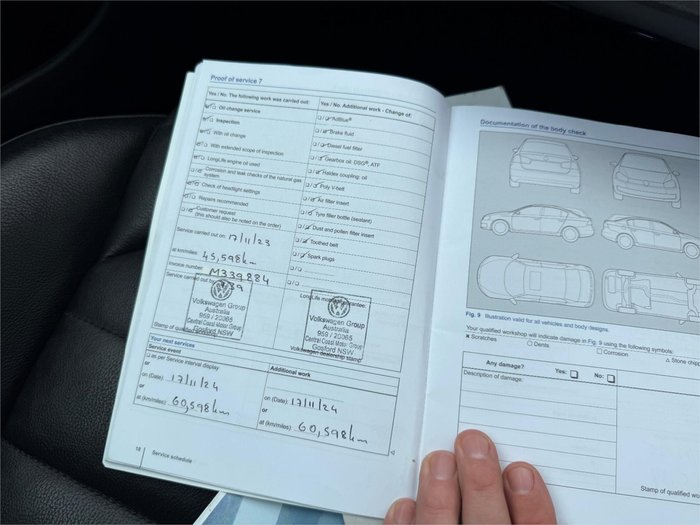 Proof of service 7
Yes / No. The following work was carried out:
Oil change service
Inspection
With oil change
With extended scope of inspection
LongLife engine oil used
Corrosion and leak checks of the natural gas
system
Check of headlight settings
Repairs recommended
Customer request
(this should also be noted on the order)
Service carried out on: 17/11/23
at km/miles: 45,598km
Invoice number: M339884
Service carried out by:
Volkswagen Group
Australia
959 / 20065
Central Coast Motor Group
Gosford NSW
Stamp of
Yes / No. Additional work - Change of:
AdBlue®
Brake fluid
Diesel fuel filter
Gearbox oil: DSG®, ATF
Haldex coupling: oil
Poly V-belt
Air filter insert
Tyre filler bottle (sealant)
Dust and pollen filter insert
Toothed belt
Spark plugs
LongLife
Volkswagen Group
Australia
959 / 20065
Central Coast Motor Group
Gosford NSW
Volkswagen dealership stamp
Your next services
Service event
as per Service interval display
or
on (Date) 17/11/24
or
at (km/miles): 60,598km
Additional work
on (Date) 17/11/24
or
at (km/miles): 60,598km
18 Service schedule
Documentation of the body check
Fig. 9 Illustration valid for all vehicles and body designs.
Your qualified workshop will indicate damage in Fig. 9 using the following symbols:
× Scratches □ Dents □ Corrosion △ Stone
Any damage? Yes: □ No: □
Description of damage:
Stamp of qualified